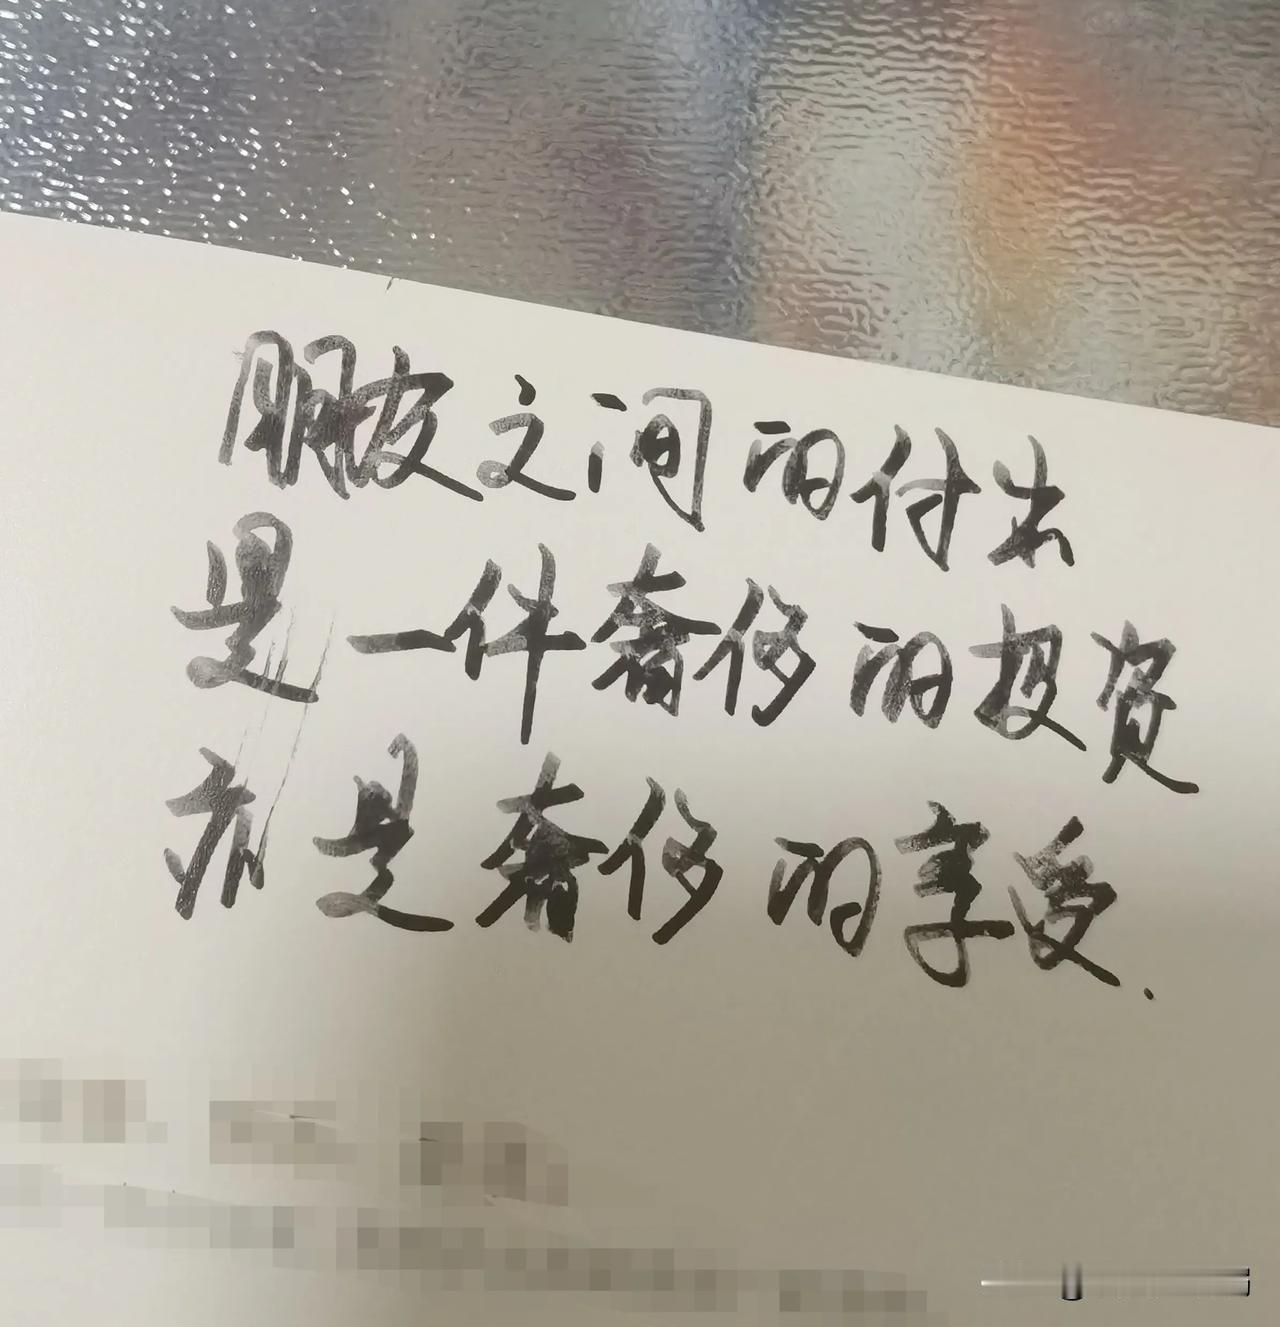 朋友之间的付出
是一件奢侈的投资
亦是奢侈的享受.